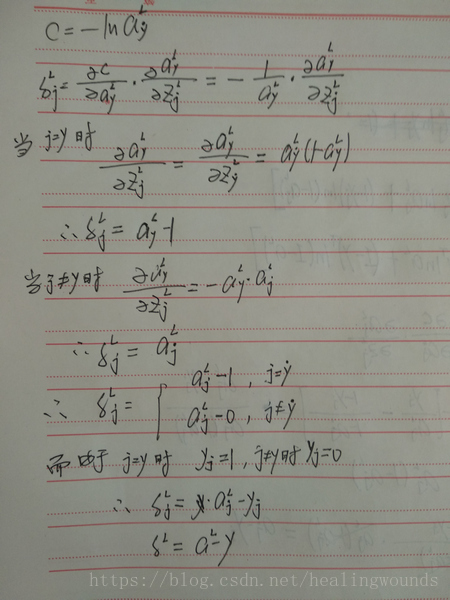 C = -ln a_y^L
δ_j^L = ∂C/∂a_y^L · ∂a_y^L/∂z_j^L = - 1/a_y^L · ∂a_y^L/∂z_j^L
当 j=y 时
∂a_y^L/∂z_j^L = ∂a_y^L/∂z_y^L = a_y^L(1-a_y^L)
∴ δ_j^L = a_y^L-1
当 j≠y 时 ∂a_y^L/∂z_j^L = -a_y^L·a_j^L
∴ δ_j^L = a_j^L
∴ δ_j^L = { a_j^L-1, j=y
a_j^L-0, j≠y
而由于 j=y时 y_j=1, j≠y时 y_j=0
∴ δ_j^L = a_j^L-y_j
δ^L = a^L-y
https://blog.csdn.net/healingwounds